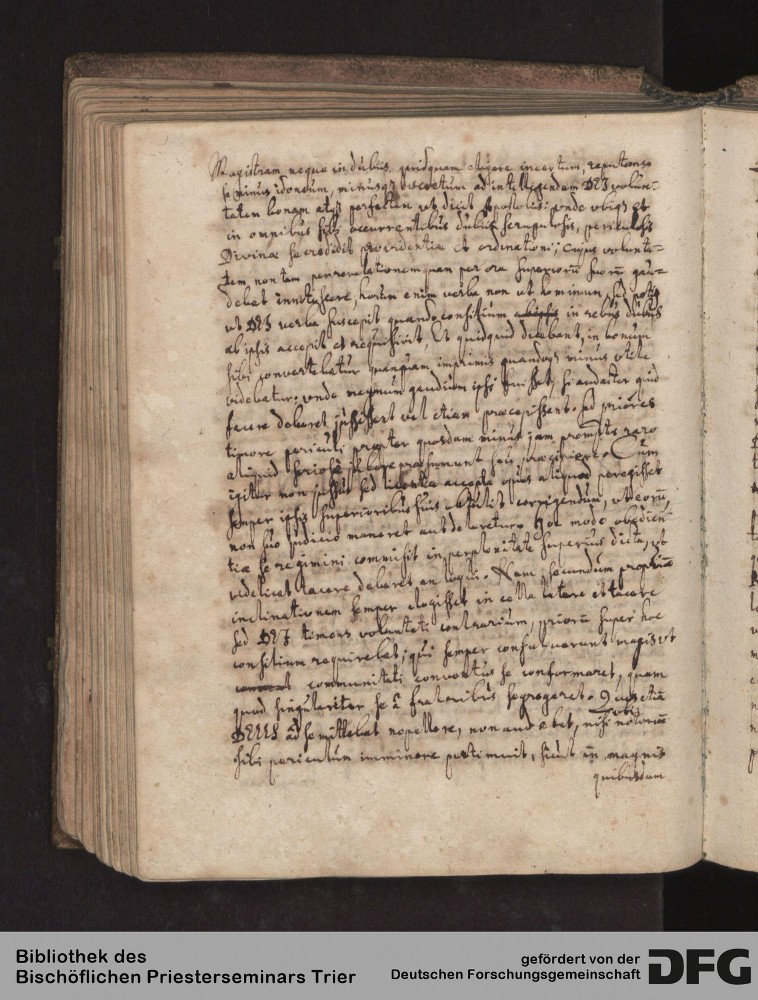 Magistram neque in dubiis quidquam eligere incertum, reputando
se minus idoneum, minusq3 discretum ad intelligendam DEI volun-
tatem bonam atq3 perfectam ut dicit Apostolus; unde ubiq3 et
in omnibus sibi occurrentibus dubiis scrupulosis, periculosis
Divinæ se credidit providentiæ et ordinationi; cujus volunta-
tem non tam per revelationem quam per ora Superiorū suorū gau-
debat innotescere, horum enim verba non ut hominum, sed potiꝰ
ut DEI verba suscepit quando consilium in rebus dubiis
ab ipsis accepit et requisivit, Et quidquid dicebant, in bonum
sibi convertebatur quanquam imprimis quandoq3 minus utile
videbatur: unde magnum gaudium ipsi fuisset, si audacter quid
facere deberet jussissent vel etiam præcepissent. sed priores
timore periculi propter quosdam minus jam promptis raro
aliquid seriosè jubere præsumunt seu præcipiere. Cùm
igitur non jussus sed licentia accepta opus aliquod peregisset
semper ipsis superioribus suis obtulit corrigendum, ut eorū,
non suo judicio maneret aut deleretur. Hoc modo obedien-
tiæ se regimini commisit in perplexitate superius dicta, ut
videlicet tacere deberet an loqui. Nam secundum propriā
inclinationem semper elegisset in cella latere et tacere
sed DEI timens voluntati contrarium, priorū super hoc
consilium requirebat; qui semper consuluerunt magis ut
communitati conventus se conformaret, quam
quod singulariter se â fratribus segregaret. Quos etiā
DEUS ad se mittebat nopellere, non audebat, nisi notoriū
sibi periculum imminere pertimuit, sicut in magnis
quibusdam
Bibliothek des
Bischöflichen Priesterseminars Trier
gefördert von der
Deutschen Forschungsgemeinschaft
DFG